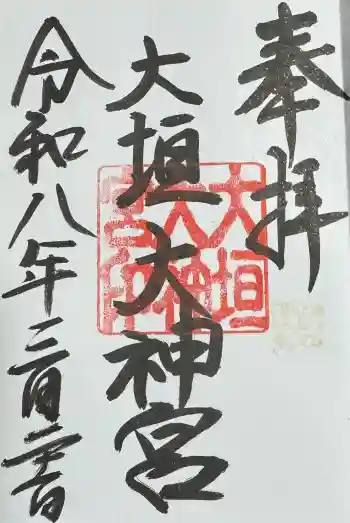 奉拝
大垣大神宮
大垣大神宮印
令和八年二月二十日